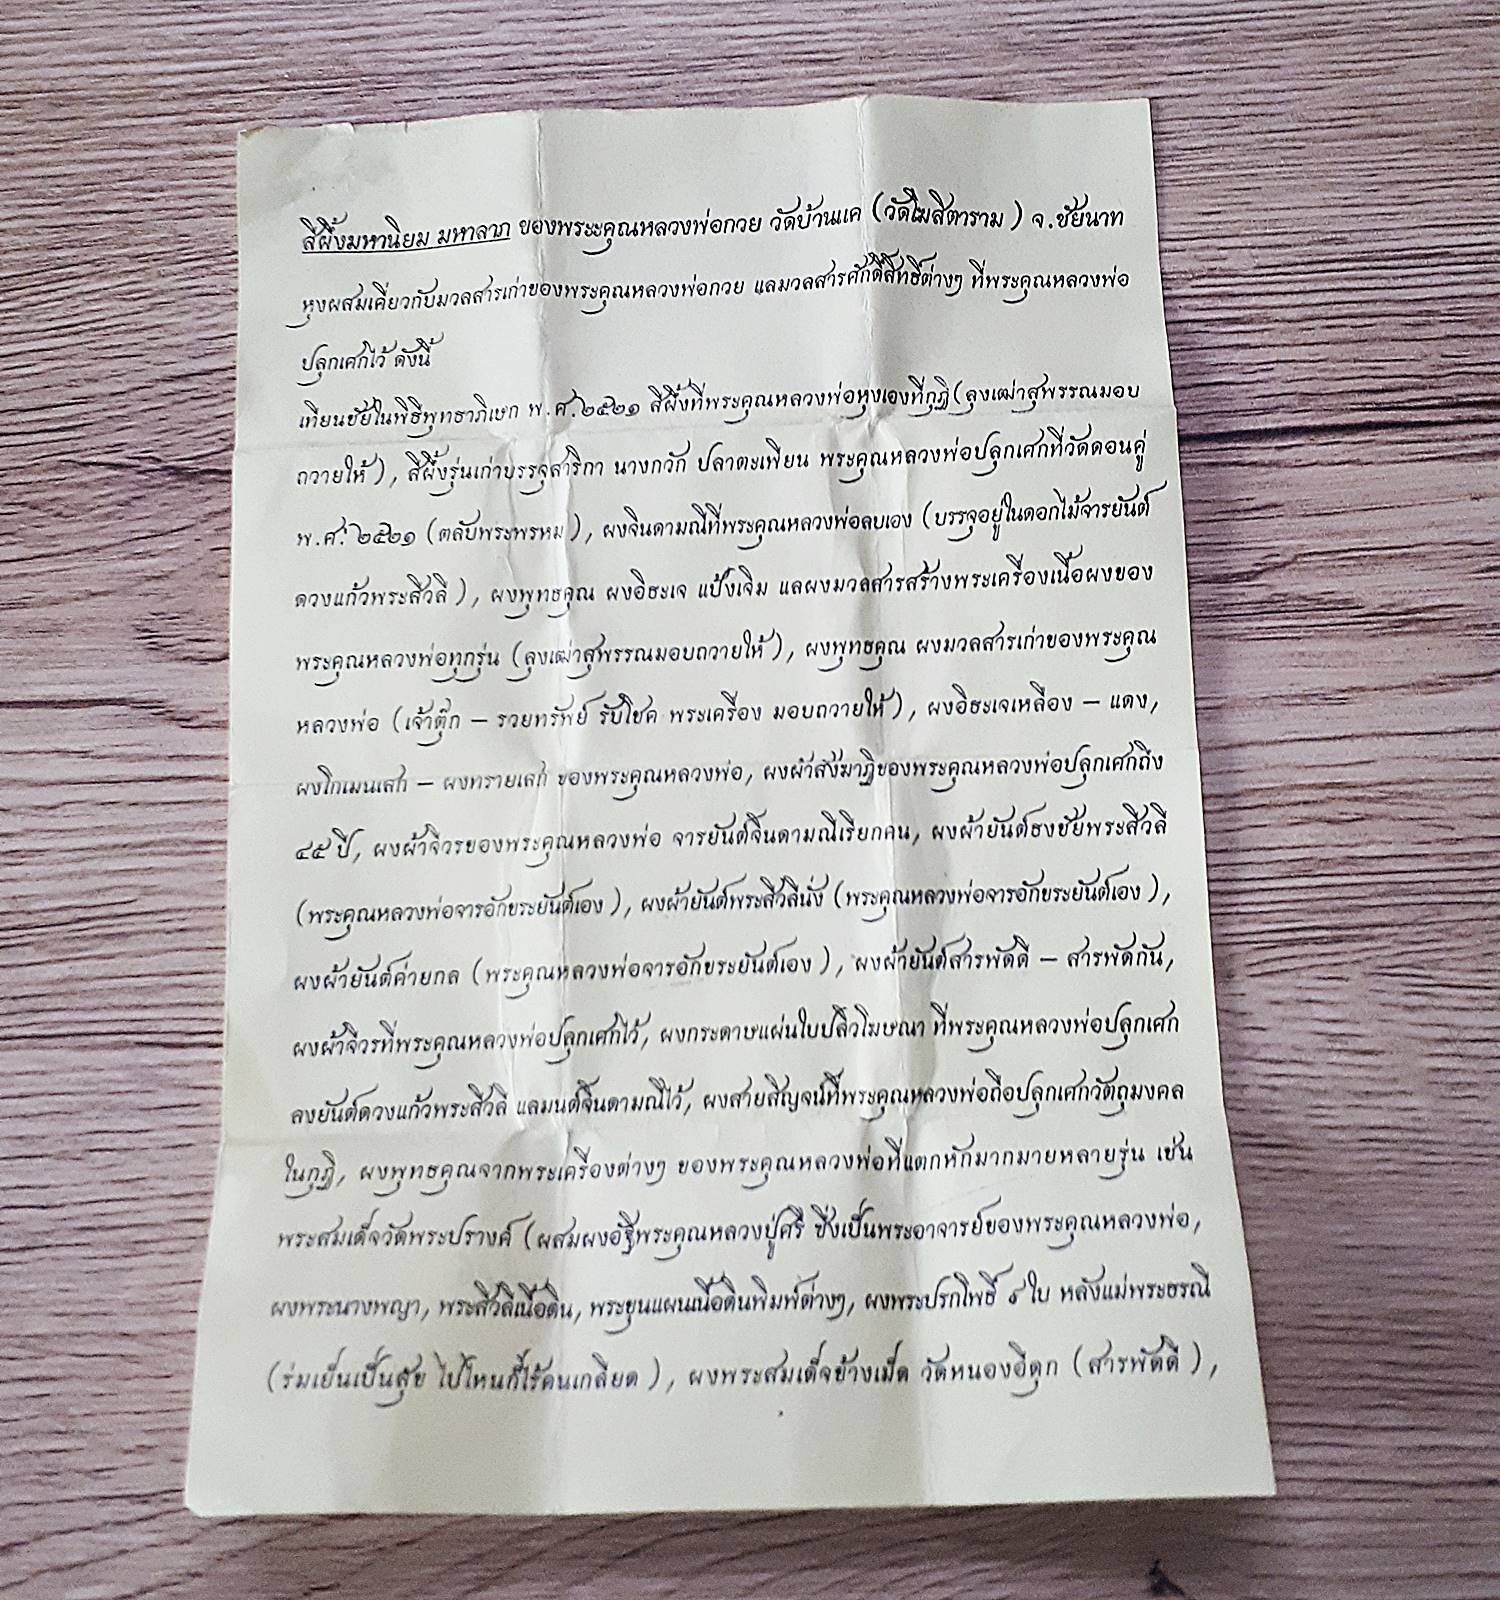 สีผึ้งมหานิยม มหาลาภ ของพระคุณหลวงพ่อกวย วัดบ้านแค (วัดโฆสิตาราม) จ.ชัยนาท
หุงผสมเคี่ยวกับมวลสารเก่าของพระคุณหลวงพ่อกวย แลมวลสารศักดิ์สิทธิ์ต่างๆ ที่พระคุณหลวงพ่อ
ปลุกเศกไว้ ดังนี้
เทียนชัยในพิธีพุทธาภิเษก พ.ศ.๒๕๒๑ สีผึ้งที่พระคุณหลวงพ่อหุงเองที่กุฏิ (ลุงเฒ่าสุพรรณมอบ
ถวายให้), สีผึ้งรุ่นเก่าบรรจุสาริกา นางกวัก ปลาตะเพียน พระคุณหลวงพ่อปลุกเศกที่วัดดอนคู่
พ.ศ. ๒๕๒๑ (ตลับพระพรหม), ผงจินดามณีที่พระคุณหลวงพ่อลบเอง (บรรจุอยู่ในดอกไม้จารยันต์
ดวงแก้วพระสีวลี), ผงพุทธคุณ ผงอิธะเจ แป้งเจิม แลผงมวลสารสร้างพระเครื่องเนื้อผงของ
พระคุณหลวงพ่อทุกรุ่น (ลุงเฒ่าสุพรรณมอบถวายให้), ผงพุทธคุณ ผงมวลสารเก่าของพระคุณ
หลวงพ่อ (เจ้าตุ๊ก – รวยทรัพย์ รับโชค พระเครื่อง มอบถวายให้), ผงอิธะเจเหลือง – แดง,
ผงโกเมนเสก – ผงทรายเสก ของพระคุณหลวงพ่อ, ผงผ้าสังฆาฏิของพระคุณหลวงพ่อปลุกเศกถึง
๔๕ ปี, ผงผ้าจีวรของพระคุณหลวงพ่อ จารยันต์จินดามณีเรียกคน, ผงผ้ายันต์ธงชัยพระสีวลี
(พระคุณหลวงพ่อจารอักขระยันต์เอง), ผงผ้ายันต์พระสีวลีนั่ง (พระคุณหลวงพ่อจารอักขระยันต์เอง),
ผงผ้ายันต์ค่ายกล (พระคุณหลวงพ่อจารอักขระยันต์เอง), ผงผ้ายันต์สารพัดดี – สารพัดกัน,
ผงผ้าจีวรที่พระคุณหลวงพ่อปลุกเศกไว้, ผงกระดาษแผ่นใบปลิวโฆษณา ที่พระคุณหลวงพ่อปลุกเศก
ลงยันต์ดวงแก้วพระสีวลี แลมนต์จินดามณีไว้, ผงสายสิญจน์ที่พระคุณหลวงพ่อถือปลุกเศกวัตถุมงคล
ในกุฏิ, ผงพุทธคุณจากพระเครื่องต่างๆ ของพระคุณหลวงพ่อที่แตกหักมากมายหลายรุ่น เช่น
พระสมเด็จวัดพระปรางค์ (ผสมผงอัฐิพระคุณหลวงปู่ศรี ซึ่งเป็นพระอาจารย์ของพระคุณหลวงพ่อ,
ผงพระนางพญา, พระสีวลีเนื้อดิน, พระขุนแผนเนื้อดินพิมพ์ต่างๆ, ผงพระปรกโพธิ์ ๙ ใบ หลังแม่พระธรณี
(ร่มเย็นเป็นสุข ไปไหนก็ไร้คนเกลียด), ผงพระสมเด็จข้างเม็ด วัดหนองอีดุก (สารพัดดี),